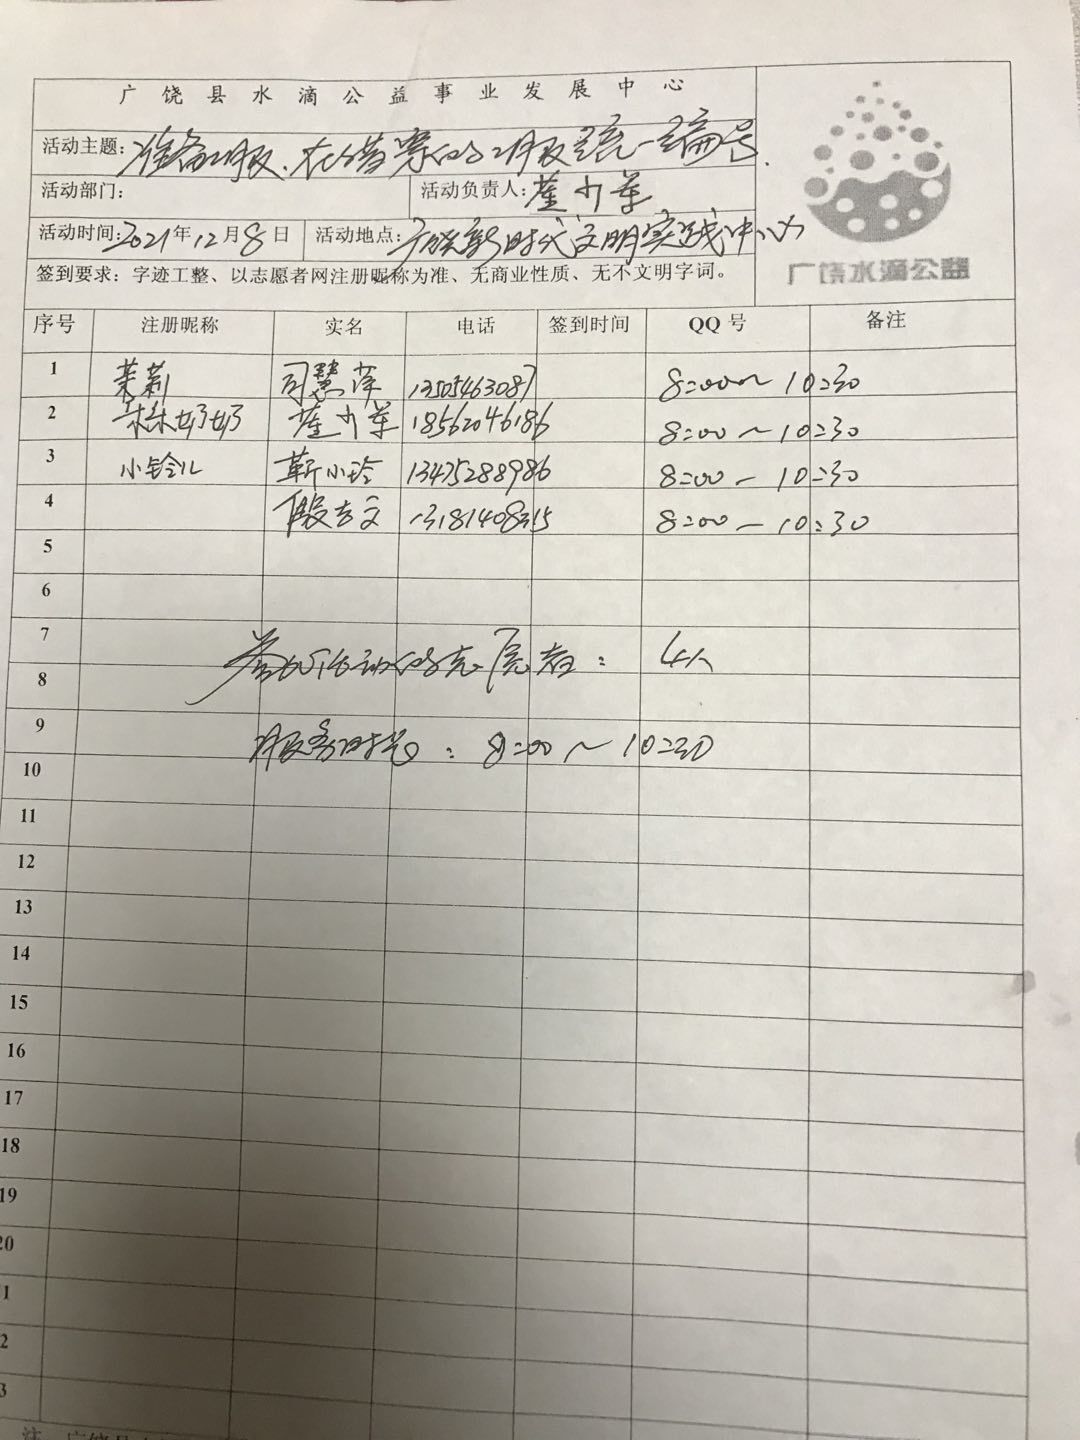 广饶县水滴公益事业发展中心
活动主题：准备工服、在借赛的工服统一编号.
活动部门： 活动负责人：崔少华
活动时间：2021年12月8日 活动地点：广饶新时代文明实践中心
签到要求：字迹工整、以志愿者网注册昵称为准、无商业性质、无不文明字词。
广饶水滴公益
序号 注册昵称 实名 电话 签到时间 QQ 号 备注
1 茉莉 司慧萍 13505463087 8:00~10:30
2 林林奶奶 崔少华 18562046186 8:00~10:30
3 小铃儿 靳小玲 13475288986 8:00-10:30
4 殷吉文 13181408315 8:00-10:30
5
6
7
参加活动的志愿者：4人
8
9
服务时长：8:00~10:30
10
11
12
13
14
15
16
17
18
19
20
1
2
3